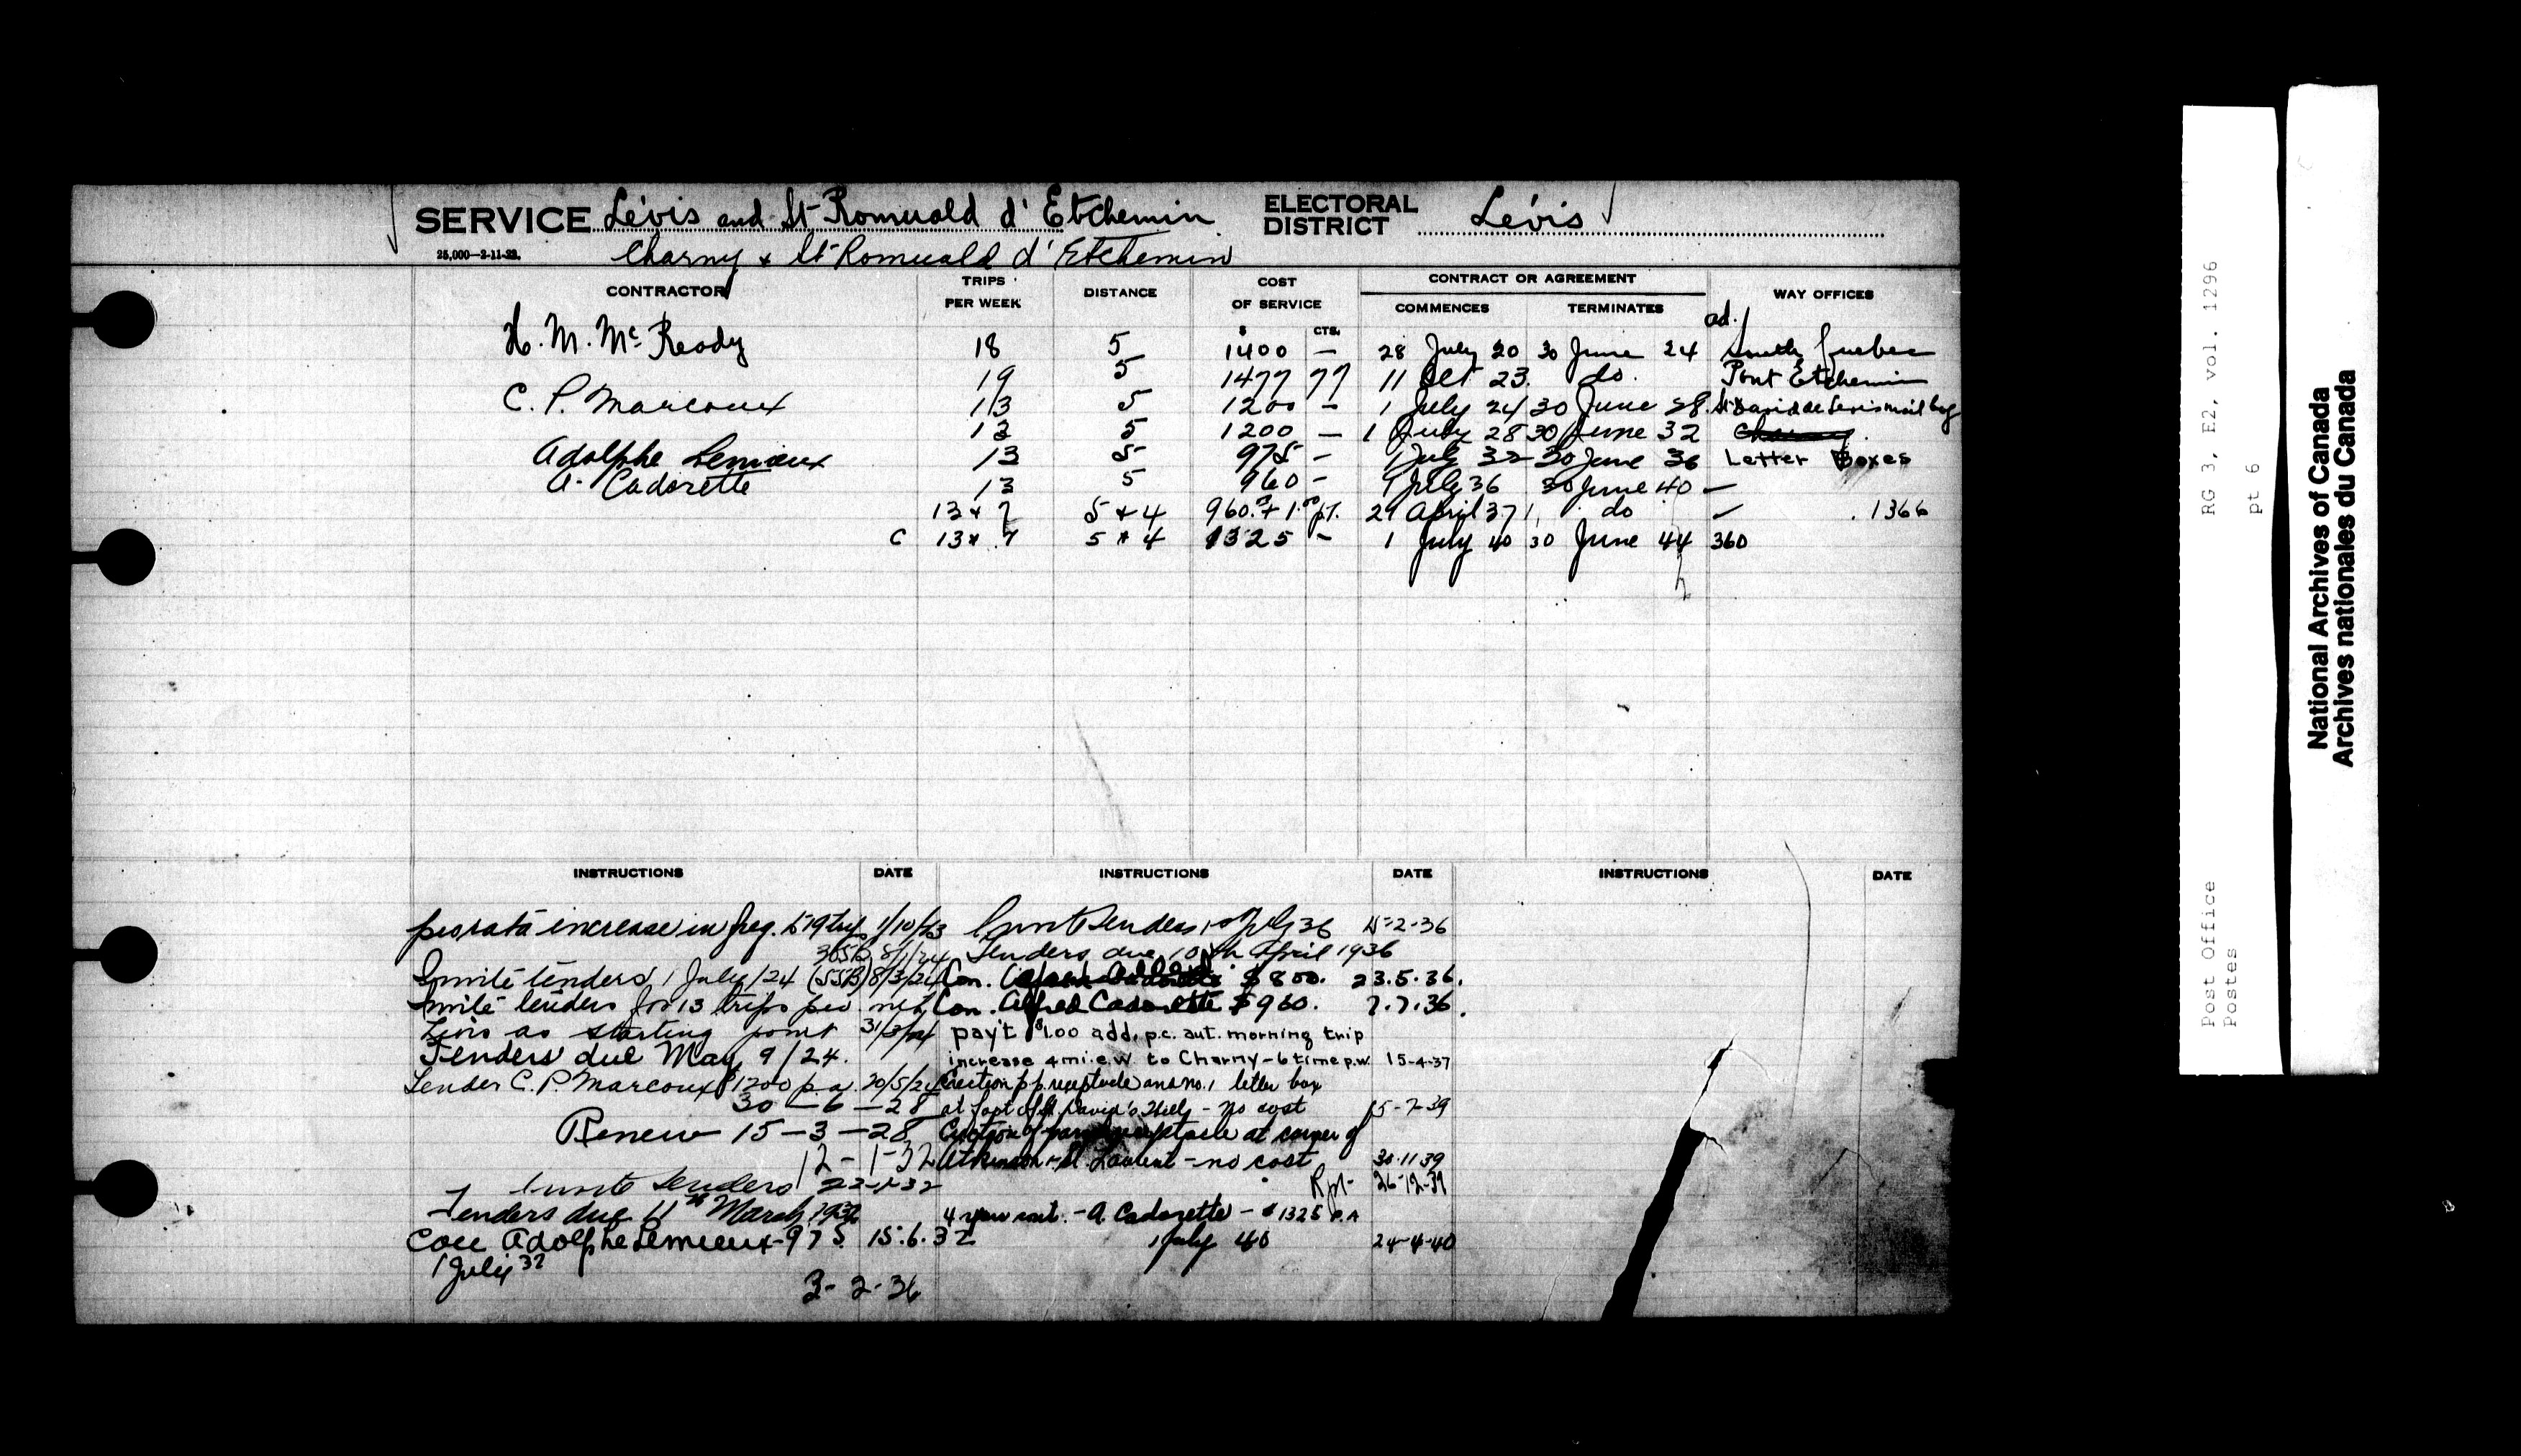 SERVICE Lévis and St Romuald d'Etchemin ELECTORAL DISTRICT Lévis
25,000—2-11-22. Charny & St Romuald d'Etchemin
CONTRACTOR TRIPS PER WEEK DISTANCE COST OF SERVICE CONTRACT OR AGREEMENT COMMENCES TERMINATES WAY OFFICES
$ CTS. ad.
H. M. McReady 18 5 1400 — 28 July 20 30 June 24 South Quebec
19 5 1477 77 11 Oct 23. do. Pont Etchemin
C. P. Marcoux 13 5 1200 — 1 July 24 30 June 28. St David de Levis mail bag
13 5 1200 — 1 July 28 30 June 32 Charny.
Adolphe Lemieux 13 5 975 — 1 July 32 30 June 36 Letter Boxes
A. Cadorette 13 5 960 — 1 July 36 30 June 40 —
13 & 7 5 & 4 960.00 + 1.00 pt. 29 April 37 do 1366
C 13 & 7 5 & 4 1325 — 1 July 40 30 June 44 360
INSTRUCTIONS DATE INSTRUCTIONS DATE INSTRUCTIONS DATE
prorata increase in freq. to 19 trips 1/10/23
365B 8/1/24
Invite tenders 1 July/24 (55B) 8/3/24
Invite tenders for 13 trips per
Levis as starting point 31/3/24
Tenders due May 9/24.
Tender C. P. Marcoux $1200 p.a. 20/5/24
30—6—28
Renew 15—3—28
12-1-32
Invite tenders 22-1-32
Tenders due 11th March 1932
Adolphe Lemieux-975 15.6.32
1 July 32
3-2-36
Invite Tenders 1 July 36 15-2-36
Tenders due 10th April 1936
Con. $800. 23.5.36.
Con. Alfred Cadorette $960. 7.7.36.
pay't $1.00 add. p.c. aut. morning trip
increase 4 mi. e.w. to Charny—6 time p.w. 15-4-37
Erection of p. receptacle and no. 1 letter box
at foot of St. David's Hill — no cost 15-7-39
Erection of receptacle at corner of
Atkinson & St Laurent — no cost 30.11.39
Rpt- 26-12-39
4 year cont. — A. Cadorette — $1325 P.A
1 July 40 24-4-40
Post Office
Postes
RG 3, E2, vol. 1296
pt 6
National Archives of Canada
Archives nationales du Canada